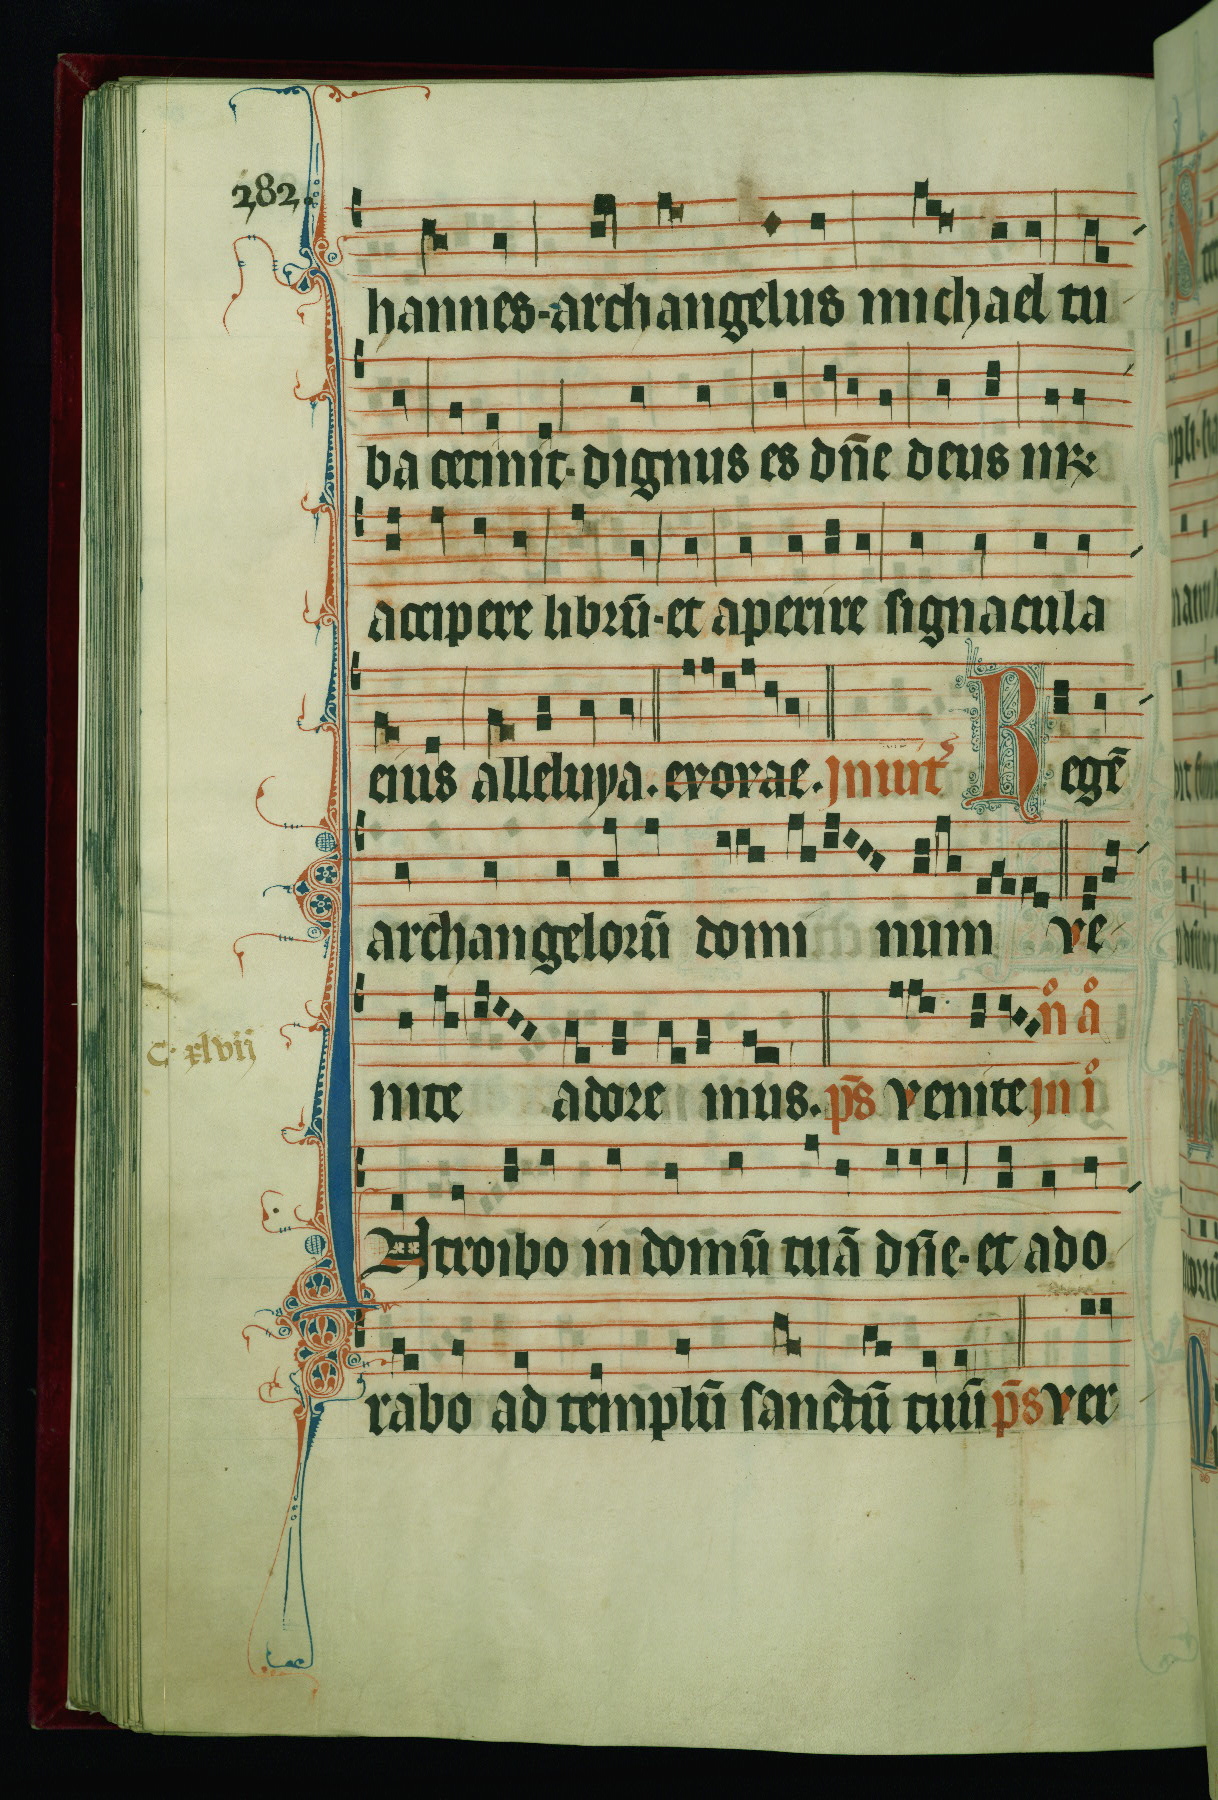 282.
hannes·archangelus michael tu
ba cecinit· dignus es dn̄e deus nr̄
accipere librū·et aperire signacula
eius alleluya. evovae. Jnuit͛ Regē
archangelorū domi num ve
n̊ å
C· xlvij
nite adore mus. p̄s venite Jn i̊
Jtroibo in domū tuā dn̄e·et ado
rabo ad templū sanctū tuū p̄s ver